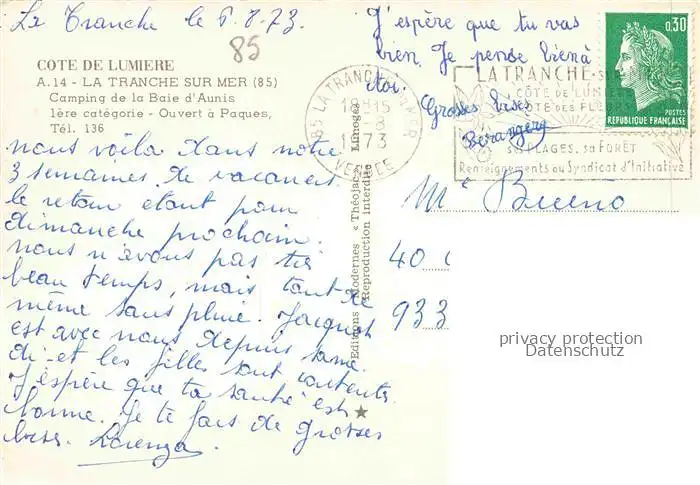 La Tranche le 6.8.73
85
COTE DE LUMIERE
A.14 - LA TRANCHE SUR MER (85)
Camping de la Baie d'Aunis
1ère catégorie - Ouvert à Paques,
Tél. 136
nous voila dans notre
3 semaines de vacances
le retour étant pour
dimanche prochain.
nous n'avons pas très
beau temps, mais tout de
même sans pluie. Jacquot
est avec nous depuis same
di et les filles sont contentes.
J'espère que ta santé est
bonne. Je te fais de grosses
bises. Lorenza
J'espère que tu vas
bien. Je pense bien à
toi.
Grosses bises
Bérangère
85 LA TRANCHE
18H15
-8
1973
VENDEE
LA TRANCHE-SUR-MER
CÔTE DE LUMIÈRE
CÔTE DES FLEURS
SES PLAGES, SA FORÊT
Renseignements au Syndicat d'Initiative
0,30
POSTES
REPUBLIQUE FRANÇAISE
Editions Modernes « Théojac » Limoges
Reproduction Interdite
Me Bueno
40
933
privacy protection
Datenschutz